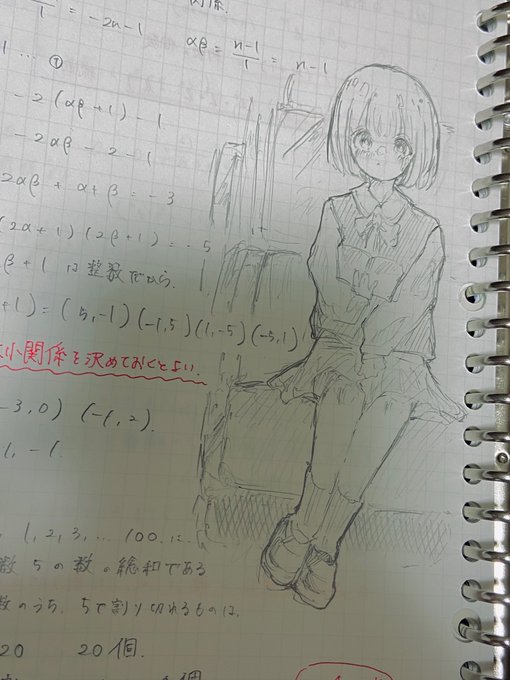 関係.
/1 = -2n-1
αβ = n-1/1 = n-1
1 … ①
-2(αβ+1)-1
-2αβ-2-1
2αβ+α+β=-3
(2α+1)(2β+1)=-5
β+1は整数だから.
+1)=(5,-1)(-1,5)(1,-5)(-5,1)
小関係を決めておくとよい.
-3,0) (-1,2).
1,-1.
1,2,3,… 100.に
数5の数の総和である
数のうち、5で割り切れるものは、
20 20個.